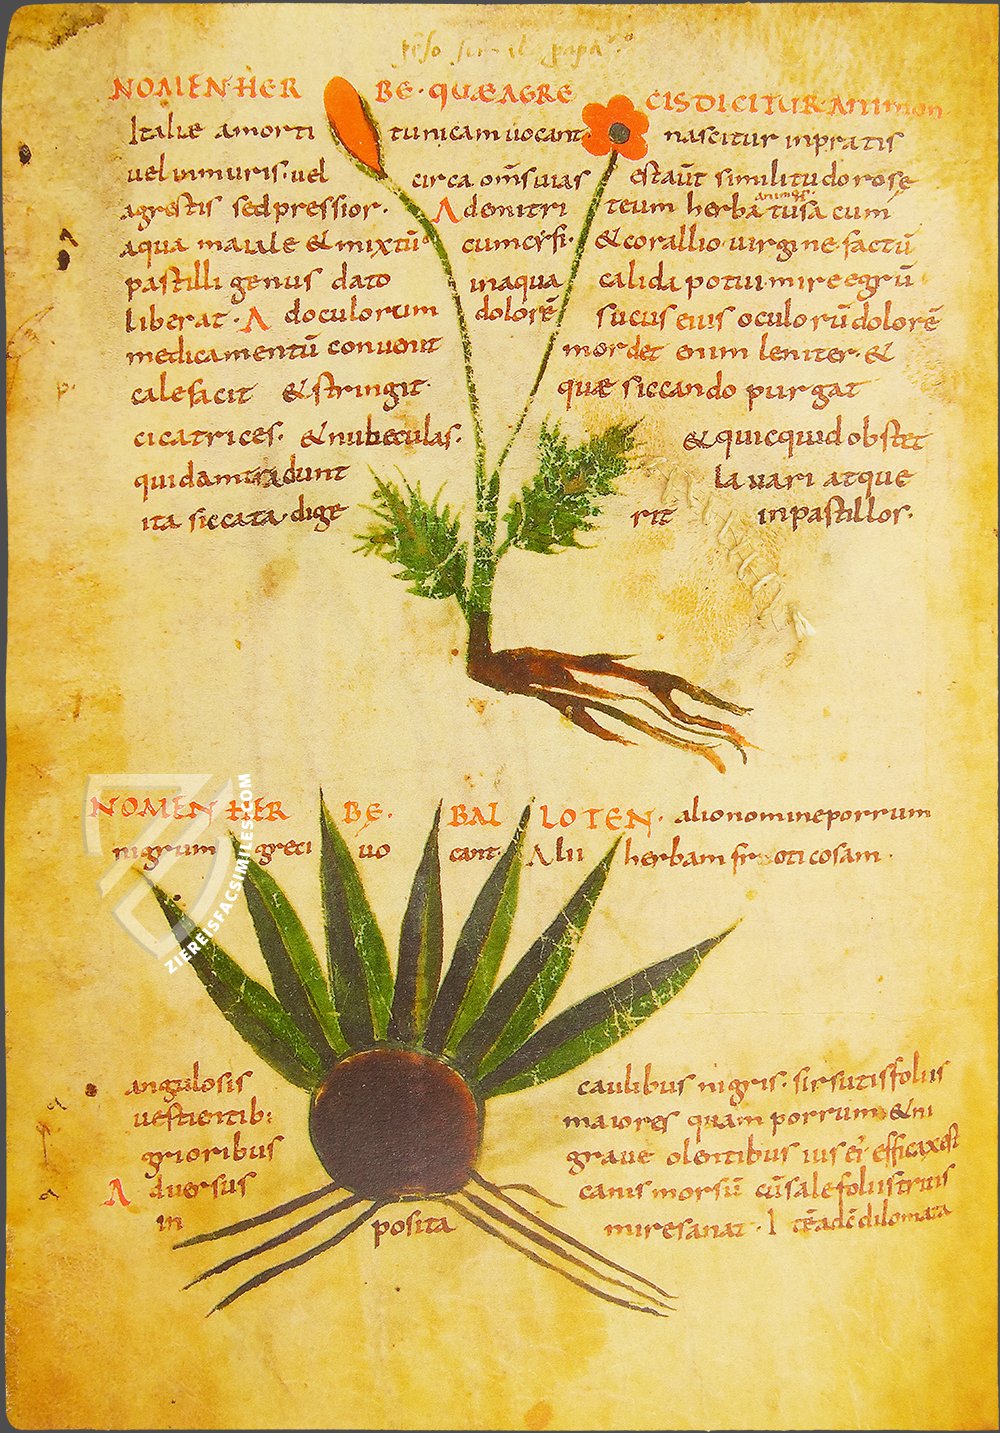 NOMEN HER BE · QUÆ AGRE CIS DICITUR ANIMON
Italiæ amorti tunicam uocant nascitur inpratis
uel inmuris · uel circa om̅s uias estau̅t similitudo rosę
agrestis sed pressior · Adenitri teum herba tusa cum
aqua maiale & mixtu̅ cum cyfi · & corallio uirgine factu̅
pastilli genus dato inaqua calida potui · mire egru̅
liberat · Adoculorum dolore̅ sucus eius oculoru̅ dolore̅
medicamentu̅ conuenit mordet enim leniter · &
calefacit & stringit · quæ siccando purgat
cicatrices · & nubeculas · & quicquid obstet
quidam tradunt lauari atque
ita siccata dige rit inpastillos ·
NOMEN HER BE · BAL LOTEN · alio nomine porrum
nigrum greci uo cant · Alii herbam oti cosam ·
angulosis caulibus nigris · sirsutis foliis
uestientib: maiores quam porrum · & ni
grioribus graue olentibus uis ei efficax est
Aduersus canis morsu̅ cu̅ sale folia tritis
in posita mire sanat · dilomata
ZIEREISFACSIMILES.COM